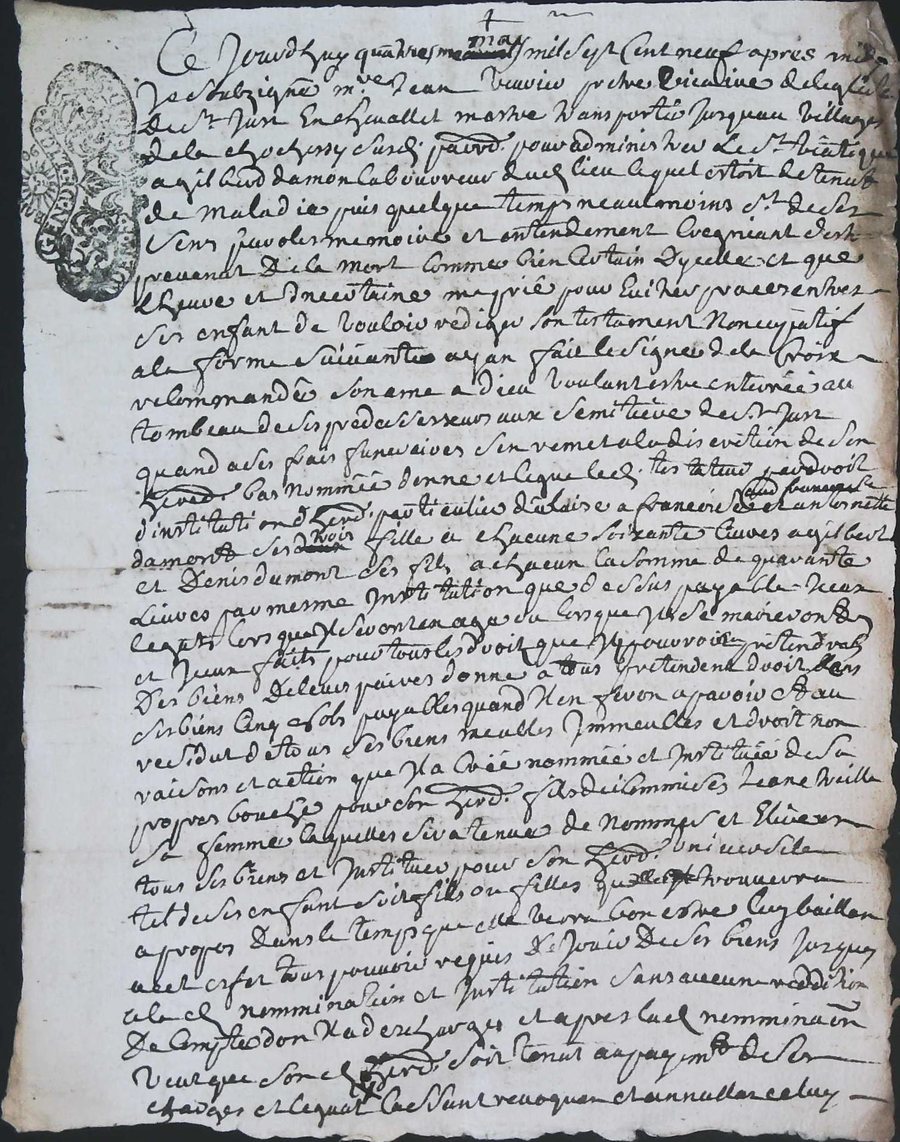 Ce Jourdhuy quatriesme may mil sept Cent neuf apres midy
Je soubzigné mre Jean prebtre vicaire de leglise
De St Just En chevallet m'estre transporté Jusquau village
de la chochessy susd. parr. pour administrer Le St viatique
a gilbert damon laboureur dud lieu lequel estoit detenut
de maladie puis quelque temps neaulmoins St de ses
sens parolles memoire et entendement Cregniant destre
prevenut De la mort Comme bien Certain Dycelle et que
Lheure et Incertaine ma prié pour Eviter proces entre
ses enfant de vouloir rediger son testament Noncupatif
a la forme suivante ayan fait le signe de la Croix
recommandé son ame a Dieu voulant estre enterréé au
tombeau de ses predecesserseurs aux semitiere de St Just
quand a ses frais funeraires sen remet a la discretion de son
herd. bas nomméé donne et legue led. testateur par droit
d'institution d'herd. particulier a francoise aud francoise et anthoinette
damont ses trois fille a chacune soixante livres a gilbert
et Denis dumont ses fils a chacun la somme de quarante
Livres par mesme Institution que dessus payable Iceux
legats lors que Il seront en age ou lorsque Ils se marieront
et Iceux faits pour tous les droit que Ils pourroient pretendre
Des biens De leurs paires donne a tous pretendent droit dans
ses biens Cinq sols payables quand Il en feron aparoir Et au
residut de tous ses biens meubles Immeubles et droit non
raisons et action que Il a Créé nomméé et Instituéé de sa
propres bouche pour son herd. Jeane treille
sa femme laquelles sera tenue de nommer et Elire en
tous ses biens et Instituer pour son herd. universele
tel de ses enfant soit fils ou filles quelle trouvera
a propos Dans le temps que elle verra bon estre luy baillan
a cet effet tous pouvoir requis De Jouir De ses biens Jusques
a la d nommination et Institution sans aucune reddition
De Compte don Il a descharges et apres lad nommination
veut que son d herd. soit tenut au payemt de ses
charges et legat Cassant revoquan et annullan celuy